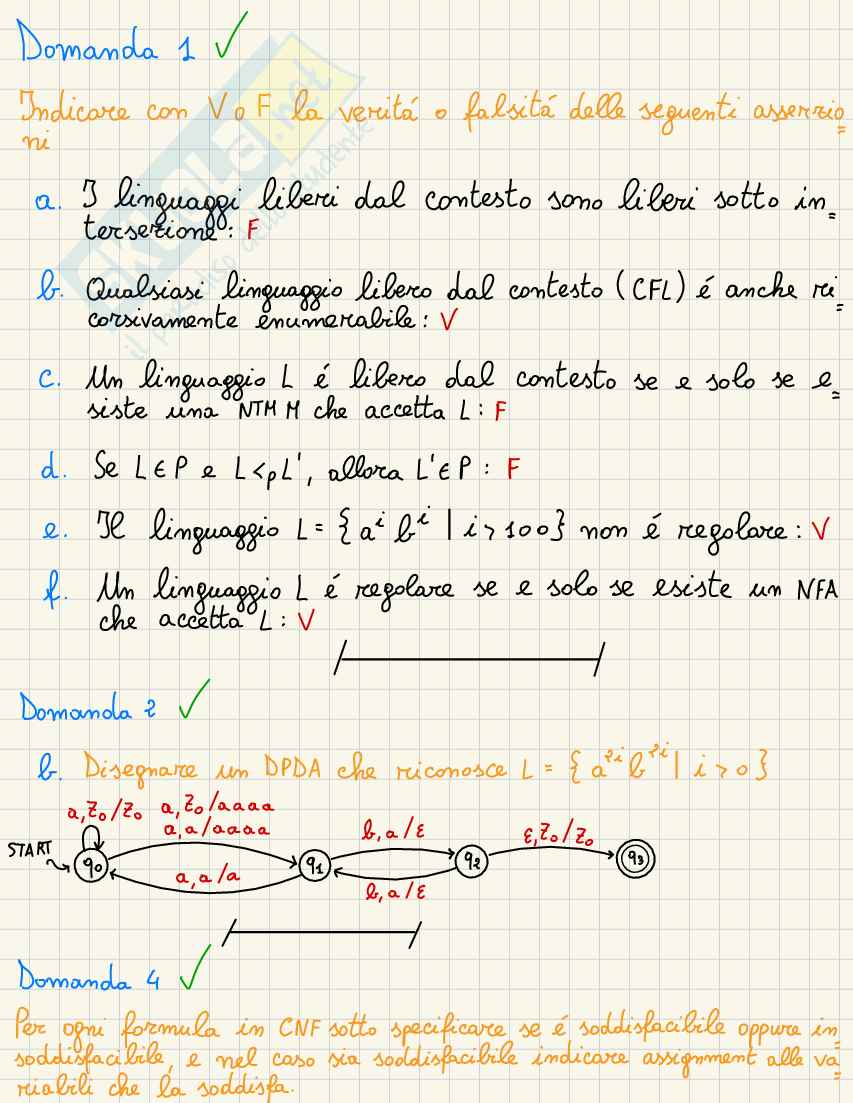 Domanda 1
Indicare con V o F la veritá o falsitá delle seguenti asserzio=
ni
a. I linguaggi liberi dal contesto sono liberi sotto in=
tersezione: F
b. Qualsiasi linguaggio libero dal contesto (CFL) é anche ri=
corsivamente enumerabile: V
c. Un linguaggio L é libero dal contesto se e solo se e=
siste una NTM M che accetta L: F
d. Se L∈P e L<ₚL', allora L'∈P: F
e. Il linguaggio L = {aⁱ bⁱ | i>100} non é regolare: V
f. Un linguaggio L é regolare se e solo se esiste un NFA
che accetta L: V
Domanda 2
b. Disegnare un DPDA che riconosce L = {a²ⁱ b²ⁱ | i>0}
a,Z₀/Z₀ a,Z₀/aaaa
a,a/aaaa
b,a/ε
ε,Z₀/Z₀
START
q₀ q₁ q₂ q₃
a,a/a
b,a/ε
Domanda 4
Per ogni formula in CNF sotto specificare se é soddisfacibile oppure in
soddisfacibile, e nel caso sia soddisfacibile indicare assignment alle va=
riabili che la soddisfa.
SKUOLA.net
il paradiso dello studente